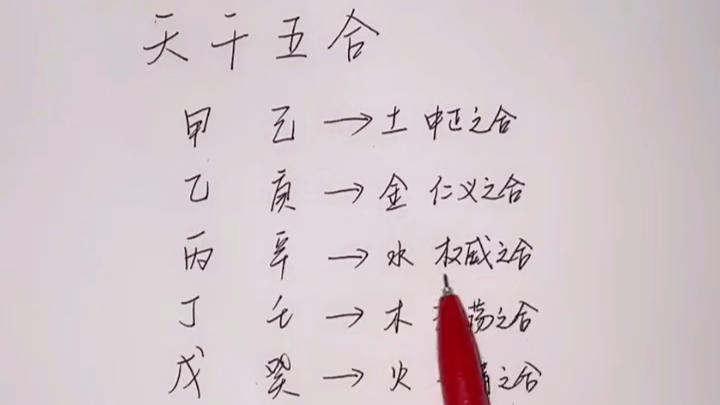 天干五合
甲 己 → 土 中正之合
乙 庚 → 金 仁义之合
丙 辛 → 水 权威之合
丁 壬 → 木 荡之合
戊 癸 → 火 之合